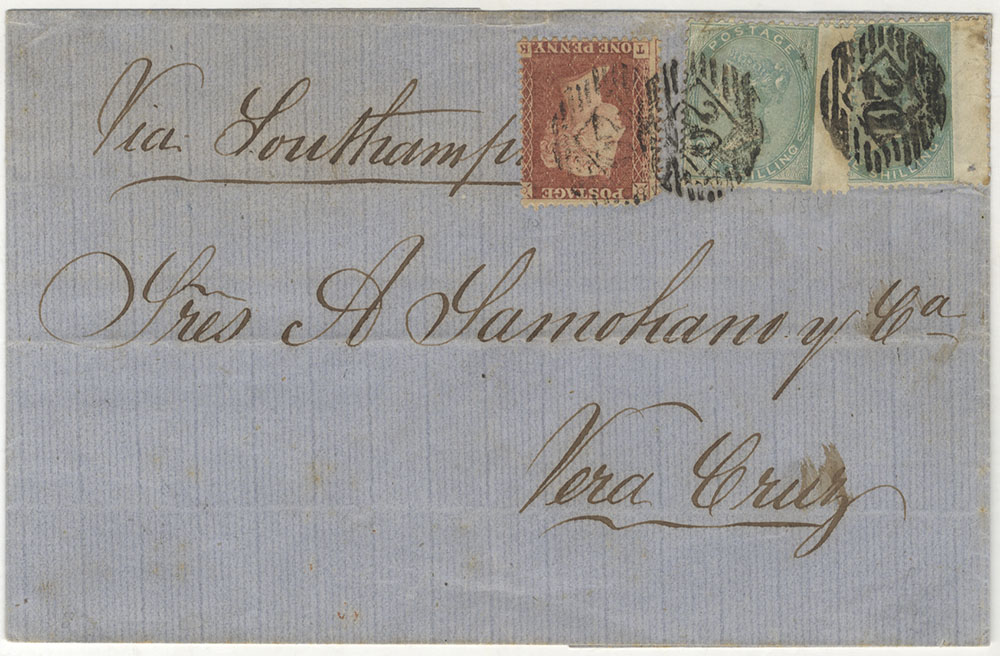 Via Southamp
Sres A Samohano y Ca
Vera Cruz
ONE PENNY.
POSTAGE
POSTAGE
SHILLING
HILLING